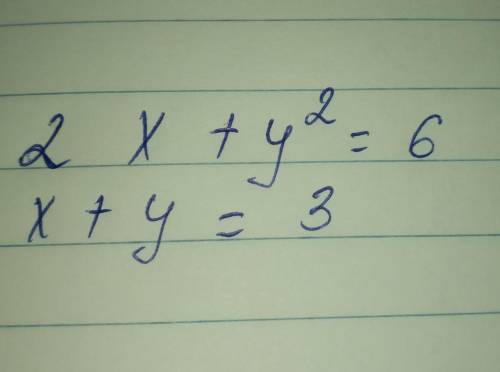 2 x + y² = 6
x + y = 3